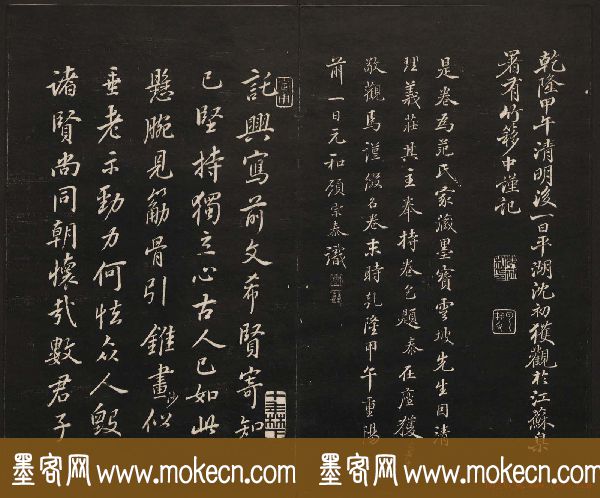 乾隆甲午清明後一日平湖沈初獲觀於江蘇臬
署有竹移中謹記
是卷為范氏家藏墨寶雲坡先生因清
理義莊其主奉持卷乞題泰在座獲
敬觀焉謹綴名卷末時乾隆甲午重陽
前一日元和顧宗泰識
託興寫前文希賢寄知
已堅持獨立心古人已如此
懸腕見筋骨引錐畫沙似
垂老示勁力何怯众人毀
诸賢尚同朝懷哉數君子
墨客网 www.mokecn.com 墨客网 www.mokecn.com